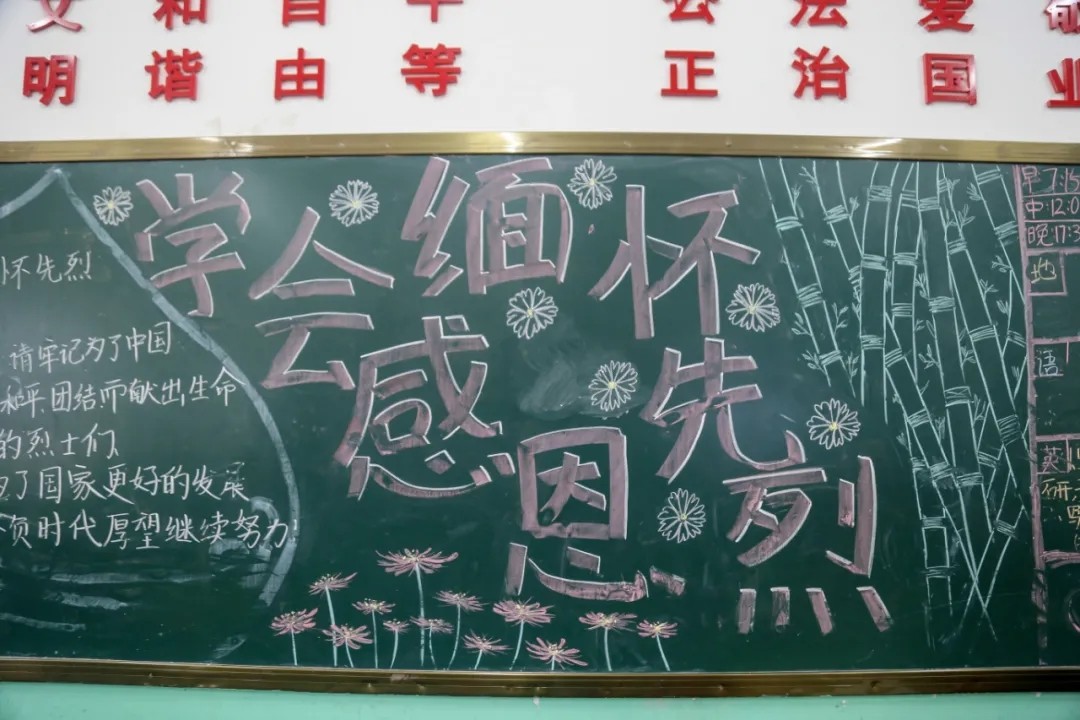 文 和 自 平 公 法 爱 敬
明 谐 由 等 正 治 国 业
学会缅怀先烈
感恩
怀先烈
请牢记为了中国
和平,团结而献出生命
的烈士们
为了国家更好的发展
不负时代厚望继续努力
早7:15
中:12:0
晚17:3
地
语
英
研